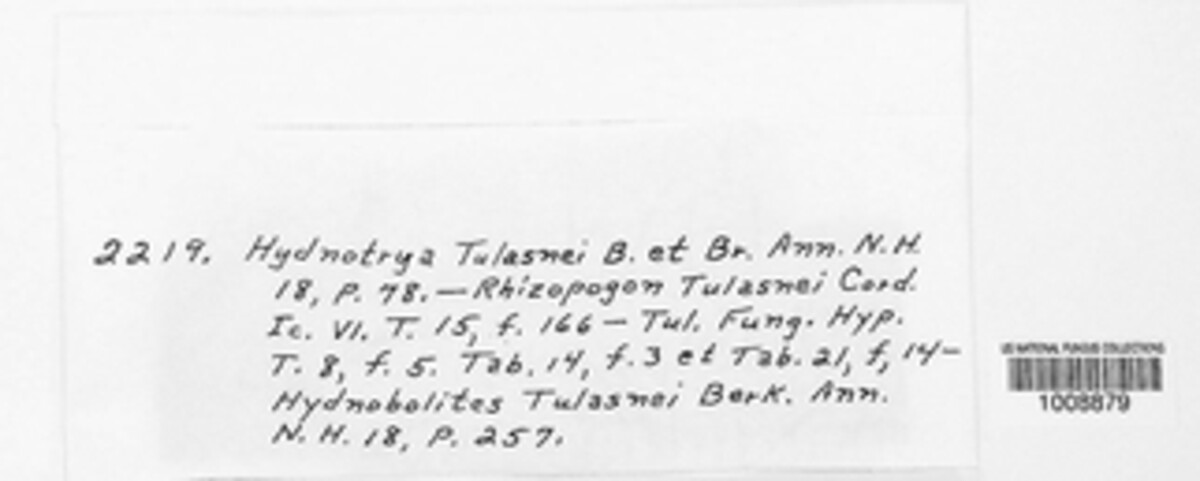 2219. Hydnotrya Tulasnei B. et Br. Ann. N. H.
18, P. 78. — Rhizopogon Tulasnei Cord.
Ic. VI. T. 15, f. 166 — Tul. Fung. Hyp.
T. 8, f. 5. Tab. 14, f. 3 et Tab. 21, f, 14 —
Hydnobolites Tulasnei Berk. Ann.
N. H. 18, P. 257.
US NATIONAL FUNGUS COLLECTIONS
1008879